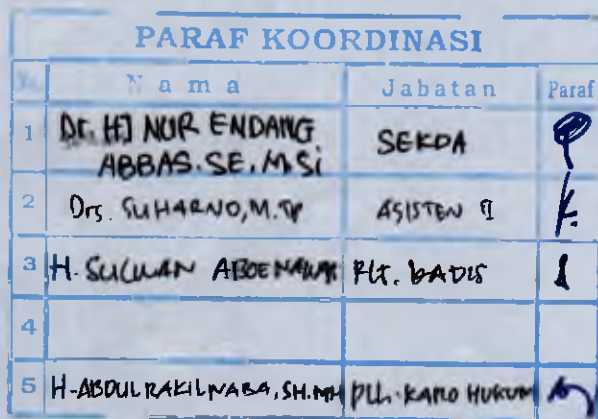 PARAF KOORDINASI
No. Nama Jabatan Paraf
1 Dr. HJ NUR ENDANG
ABBAS. SE. M.Si SEKDA
2 Drs. SUHARNO, M.TP ASISTEN I
3 H. PLT. KADIS
4
5 H. ABDUL RAKIL NABA, SH. MH PLH. KARO HUKUM